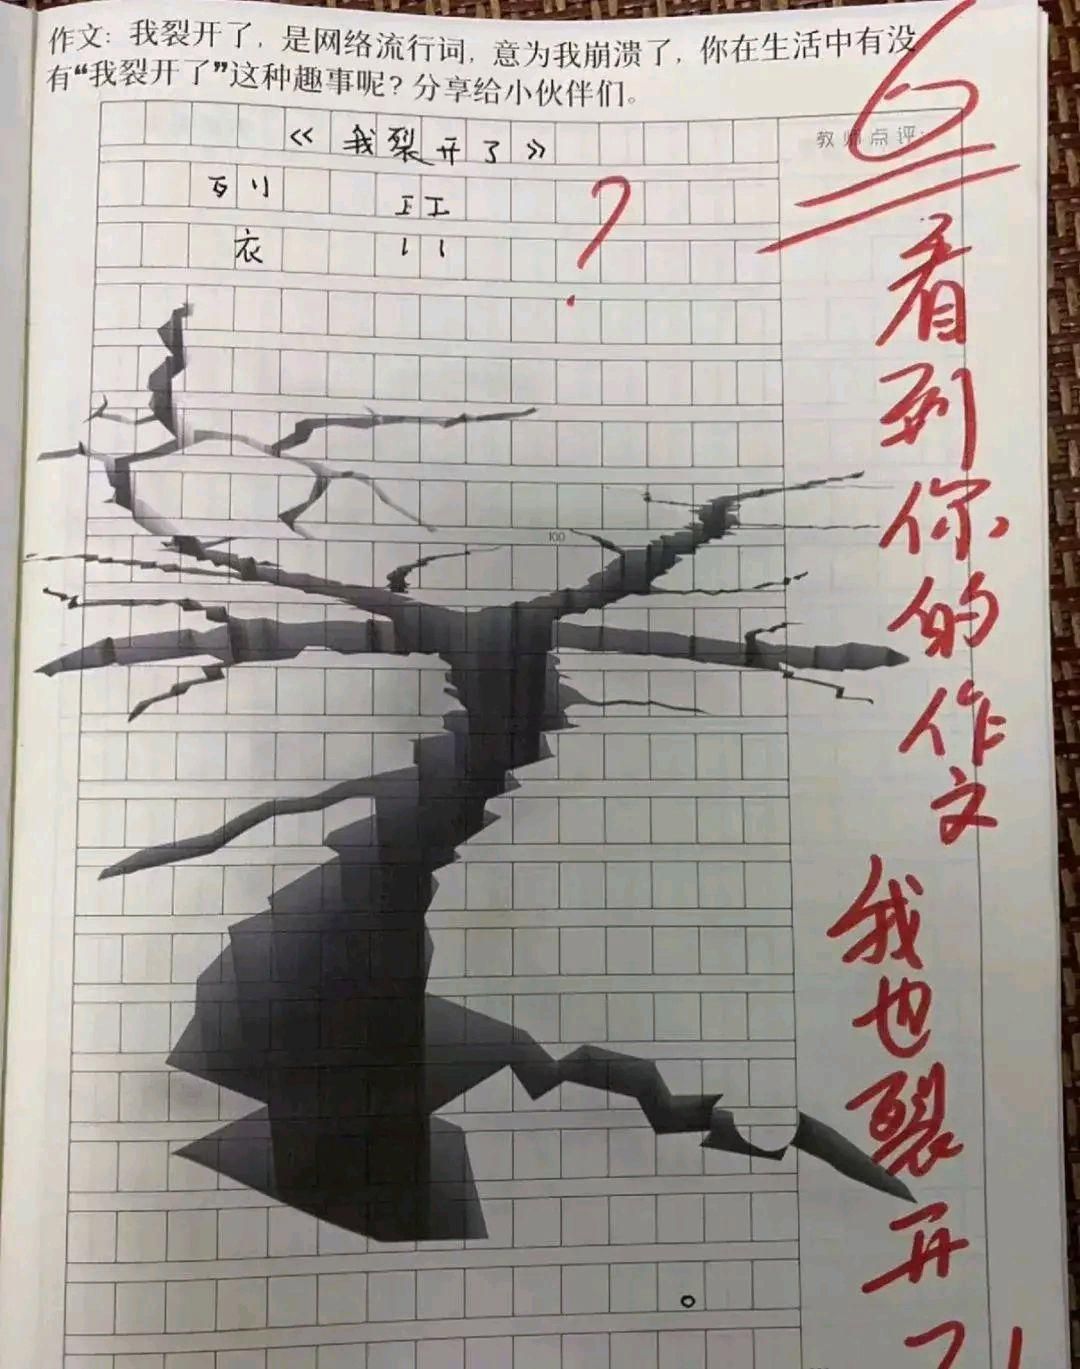 作文：我裂开了，是网络流行词，意为我崩溃了，你在生活中有没
有“我裂开了”这种趣事呢？分享给小伙伴们。
《我裂开了》
教师点评：
歹刂
衣
？
100
。
看到你的作文
我也裂开了！